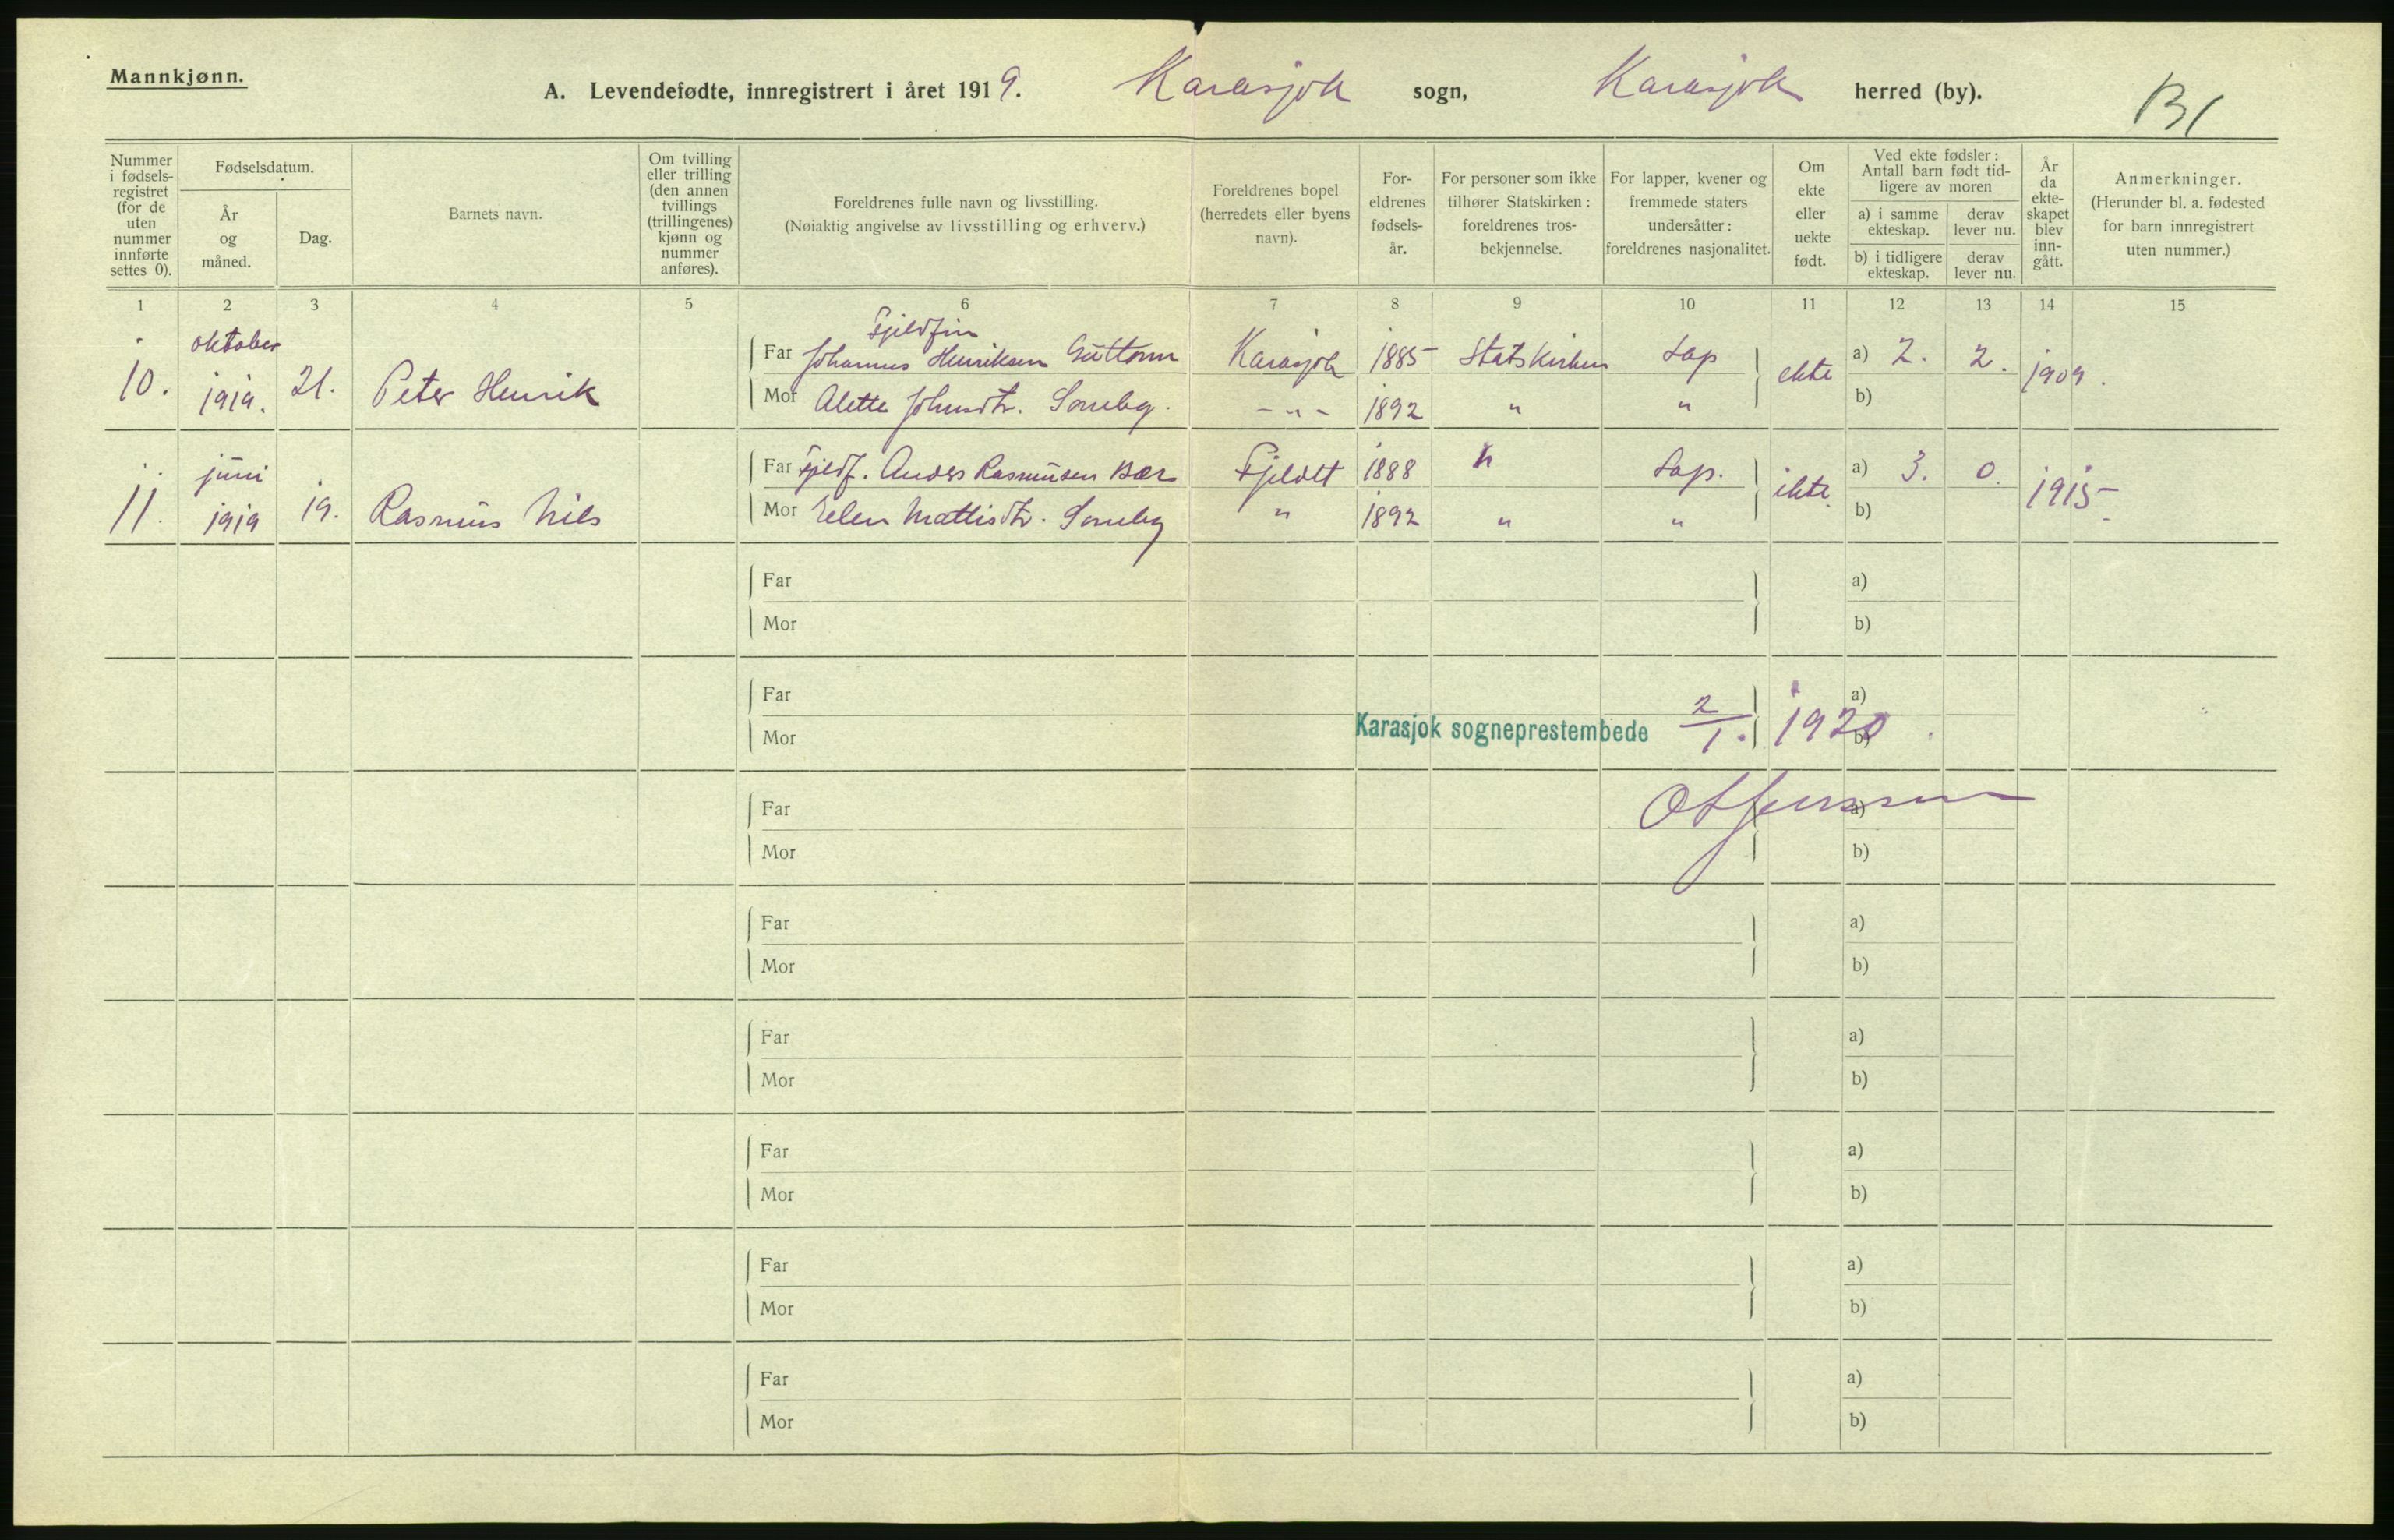 Mannkjønn.
A. Levendefødte, innregistrert i året 1919. Karasjok sogn, Karasjok herred (by).
Nummer i fødsels-registret (for de uten nummer innførte settes 0).
Fødselsdatum.
År og måned.
Dag.
Barnets navn.
Om tvilling eller trilling (den annen tvillings (trillingenes) kjønn og nummer anføres).
Foreldrenes fulle navn og livsstilling.
(Nøiaktig angivelse av livsstilling og erhverv.)
Foreldrenes bopel (herredets eller byens navn).
For-eldrenes fødsels-år.
For personer som ikke tilhører Statskirken: foreldrenes tros-bekjennelse.
For lapper, kvener og fremmede staters undersåtter: foreldrenes nasjonalitet.
Om ekte eller uekte født.
Ved ekte fødsler: Antall barn født tid-ligere av moren
a) i samme ekteskap.
derav lever nu.
b) i tidligere ekteskap.
derav lever nu.
År da ekte-skapet blev inn-gått.
Anmerkninger.
(Herunder bl. a. fødested for barn innregistrert uten nummer.)
1 2 3 4 5 6 7 8 9 10 11 12 13 14 15
oktober Fjeldfin
Far Johannes Henriksen Guttorm Karasjok 1885 Statskirken Lap a) 2. 2.
10. 1919. 21. Peter Henrik ekte 1909.
Mor Alette Johnsdtr. Somby. -„- 1892 „ „ b)
juni Far Fjeldf. Anders Rasmusen Bær Fjeldet 1888 „ Lap. a) 3. 0.
11. 1919 19. Rasmus Nils ekte 1915
Mor Elen Mattisdtr. Somby „ 1892 „ „ b)
Far a)
Mor b)
Far a)
Karasjok sogneprestembede 2/1. 1920.
Mor b)
Far a)
Mor b)
Far a)
Mor b)
Far a)
Mor b)
Far a)
Mor b)
Far a)
Mor b)
Far a)
Mor b)